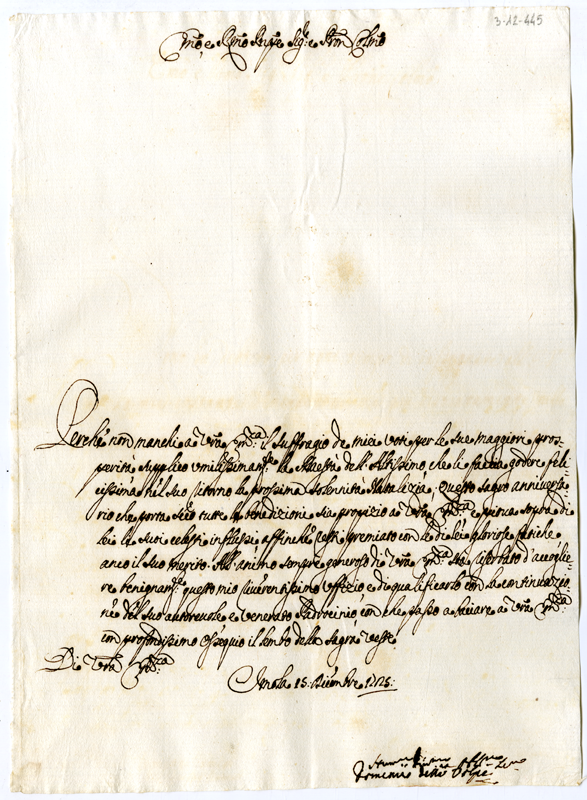 3-12-445
Em̃o, e Rm̃o Sig.r e Pron Colm̃o
Perche non manchi a Vrã Em̃za il suffragio de miei voti per le sue maggiori pros-
perità supplico umilissimam.te la Maestà dell'Altissimo che le faccia godere feli
cissima nel suo ritorno la prossima solennità Natalizia. Questo sagro anniversa
rio che porta seco tutte le benedizioni sia propizio a Vrã Em̃za e piova sopra di
lei li suoi celesti influssi affinche resti premiato con le di lei gloriose fatiche
anco il suo merito. All'animo sempre generoso di Vrã Em̃za sta riserbato d'accoglie-
re benignam.te questo mio riverentissimo uffizio e di qualificarlo con la continuazio-
ne del suo autorevole e venerato Padrocinio con che passo a baciare a Vrã Em̃za
con profondissimo ossequio il lembo della Sagra Veste
Di Vrã Em̃za
Imola 15: Diēmbre 1725:
Domenico della Volpe